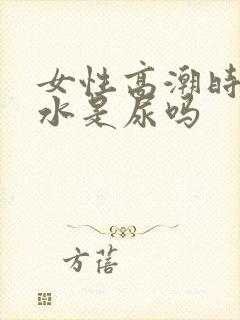 女性高潮时
水是尿吗
方蓓